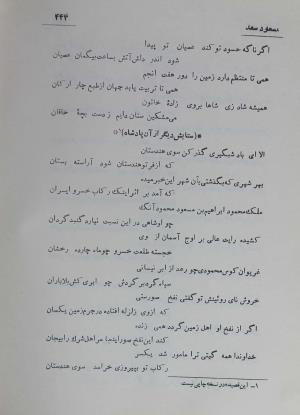 مسعود سعد
۴۴۴
اگر ناگه حسود تو کند عصیان تو پیدا
شود اندر دلش آتش بساعت بیگمان عصیان
همی تا منتظم دارد زمین را دور هفت انجم
همی تا تربیت یابد جهان از طبع چار ارکان
همیشه شاد زی شاها بروی زادهٔ خاتون
می مشکین ستان دایم ز دست بچهٔ خاقان
*(ستایش دیگر از آن پادشاه)*(۱)
الا ای باد شبگیری گذر کن سوی هندستان
که از فر تو هندستان شود آراسته بستان
بهر شهری که بگذشتی بآن شهر این خبر میده
که آمد بر اثر اینک رکاب خسرو ایران
ملک محمود ابراهیم بن مسعود محمود آنک
چو او شاهی در این نسبت نیارد گنبد گردان
کشیده رایت عالی بر اوج آسمان از وی
خجسته طلعت خسرو چو ماه چارده رخشان
غریوان کوس محمودی چو رعد از ابر نیسانی
سپاه گرد بر گردش چو ابری کش بلا باران
خروش نای روئینش تو گفتی نفخ صور ستی
که از وی زلزله افتاده در جرم زمین یکسان
اگر از نفخ او اهل زمین گردد همی زنده
کند این نفخ صور اینجا مر اهل شرک را بیجان
خداوندا همه گیتی ترا مامور شد یکسر
رکاب تو بپیروزی خرامد سوی هندستان
۱- این قصیده در نسخه چاپی نیست